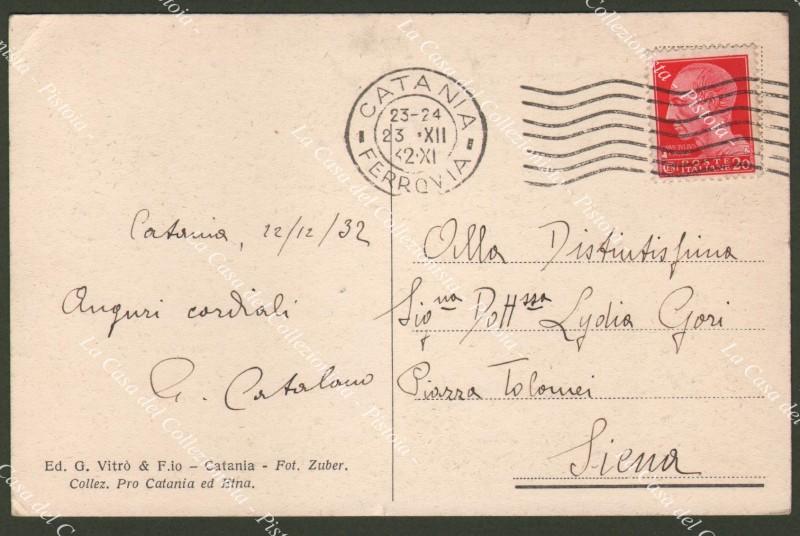 CATANIA
23-24
23 XII
32·XI
FERROVIA
POSTE
ITALIANE 20
Catania, 22/12/32
Auguri cordiali
G. Catalano
Ed. G. Vitrò & F.io – Catania - Fot. Zuber.
Collez. Pro Catania ed Etna.
Alla Distintissima
Signa Dottssa Lydia Gori
Piazza Tolomei
Siena
La Casa del Collezionista - Pistoia -